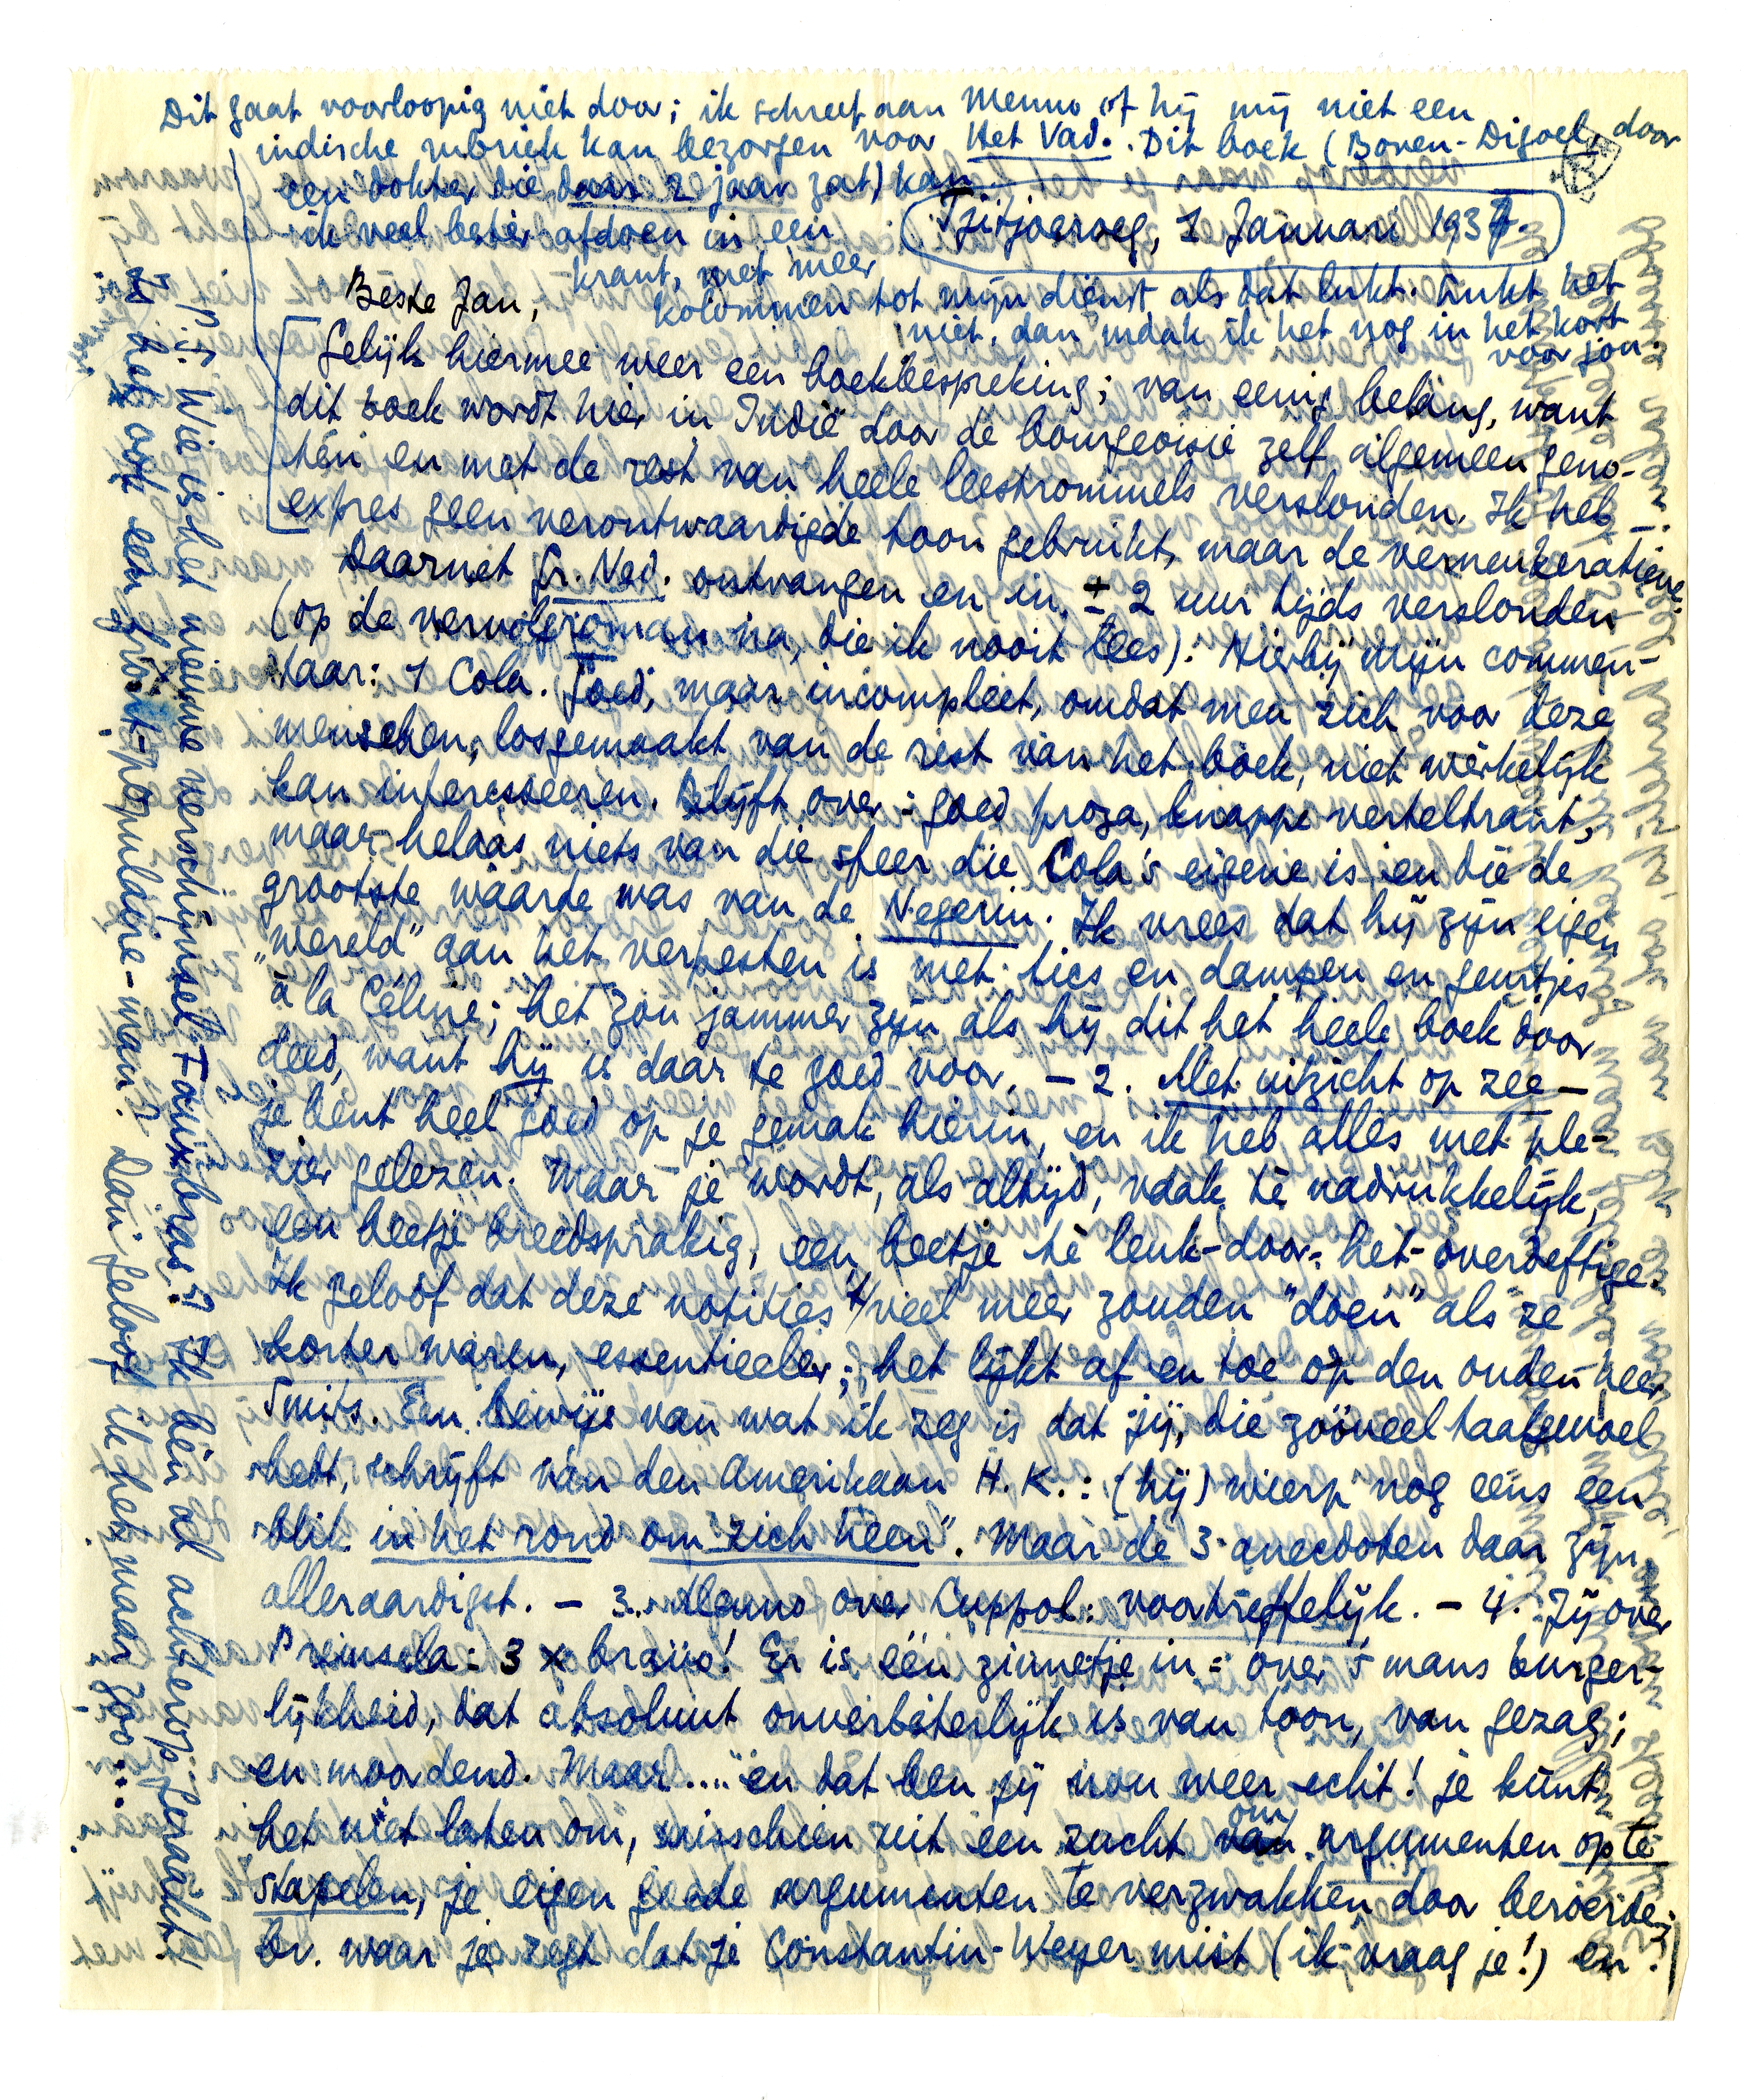 Dit gaat voorloopig niet door; ik schreef aan Menno of hij mij niet een
indische rubriek kan bezorgen voor Het Vad. Dit boek (Boven-Digoel, door
een dokter die daar 2 jaar zat) kan
ik veel beter afdoen in een
krant, met meer
kolommen tot mijn dienst als dat lukt. Lukt het
niet, dan maak ik het nog in het kort
voor jou.
Tjitjoeroeg, 1 Januari 1937.
Beste Jan,
Gelijk hiermee weer een boekbespreking; van eenig belang, want
dit boek wordt hier in Indië door de bourgeoisie zelf algemeen geno-
ten en met de rest van heele leestrommels verslonden. Ik heb
expres geen verontwaardigde toon gebruikt, maar de verneukeratieve.
Daarnet Gr. Ned. ontvangen en in ± 2 uur tijds verslonden
(op de vervolgroman na, die ik nooit lees). Hierbij mijn commen-
taar: 1 Cola. Goed, maar incompleet, omdat men zich voor deze
menschen, losgemaakt van de rest van het boek, niet werkelijk
kan interesseeren. Blijft over: goed proza, knappe verteltrant,
maar helaas niets van die sfeer die Cola's eigene is en die de
grootste waarde was van de Negerin. Ik vrees dat hij zijn eigen
„wereld" aan het verpesten is met tics en dampen en geurtjes
à la Céline; het zou jammer zijn als hij dit het heele boek door
deed, want hij is daar te goed voor. — 2. Met uitzicht op zee —
je bent heel goed op je gemak hierin, en ik heb alles met ple-
zier gelezen. Maar je wordt, als altijd, vaak te nadrukkelijk,
een beetje breedsprakig, een beetje te leuk-door-het-overdeftige.
Ik geloof dat deze notities veel meer zouden "doen" als ze
korter waren, essentieeler; het lijkt af en toe op den ouden heer
Smits. Een bewijs van wat ik zeg is dat jij, die zóóveel taalgevoel
hebt, schrijft van den Amerikaan H.K.: (hij) wierp nog eens een
blik in het rond om zich heen". Maar de 3 anecdoten daar zijn
alleraardigst. — 3. Menno over Cuppol: voortreffelijk. — 4. Jij over
Prinsela: 3 x bravo! Er is één zinnetje in: over 's mans burger-
lijkheid, dat absoluut onverbeterlijk is van toon, van gezag;
en moordend. Maar.... en dat ben jij nou weer echt! je kunt
het niet laten om, misschien uit een zucht om argumenten op te
stapelen, je eigen goede argumenten te verzwakken door beroerde;
bv. waar je zegt dat je Constantin-Weyer mist (ik vraag je!) en
P.S. Wie is het nieuwe verschijnsel Faux-bras? Ik ben al achterop geraakt!
Is het ook een front-populaire-man? Dan geloof ik het maar zoo...